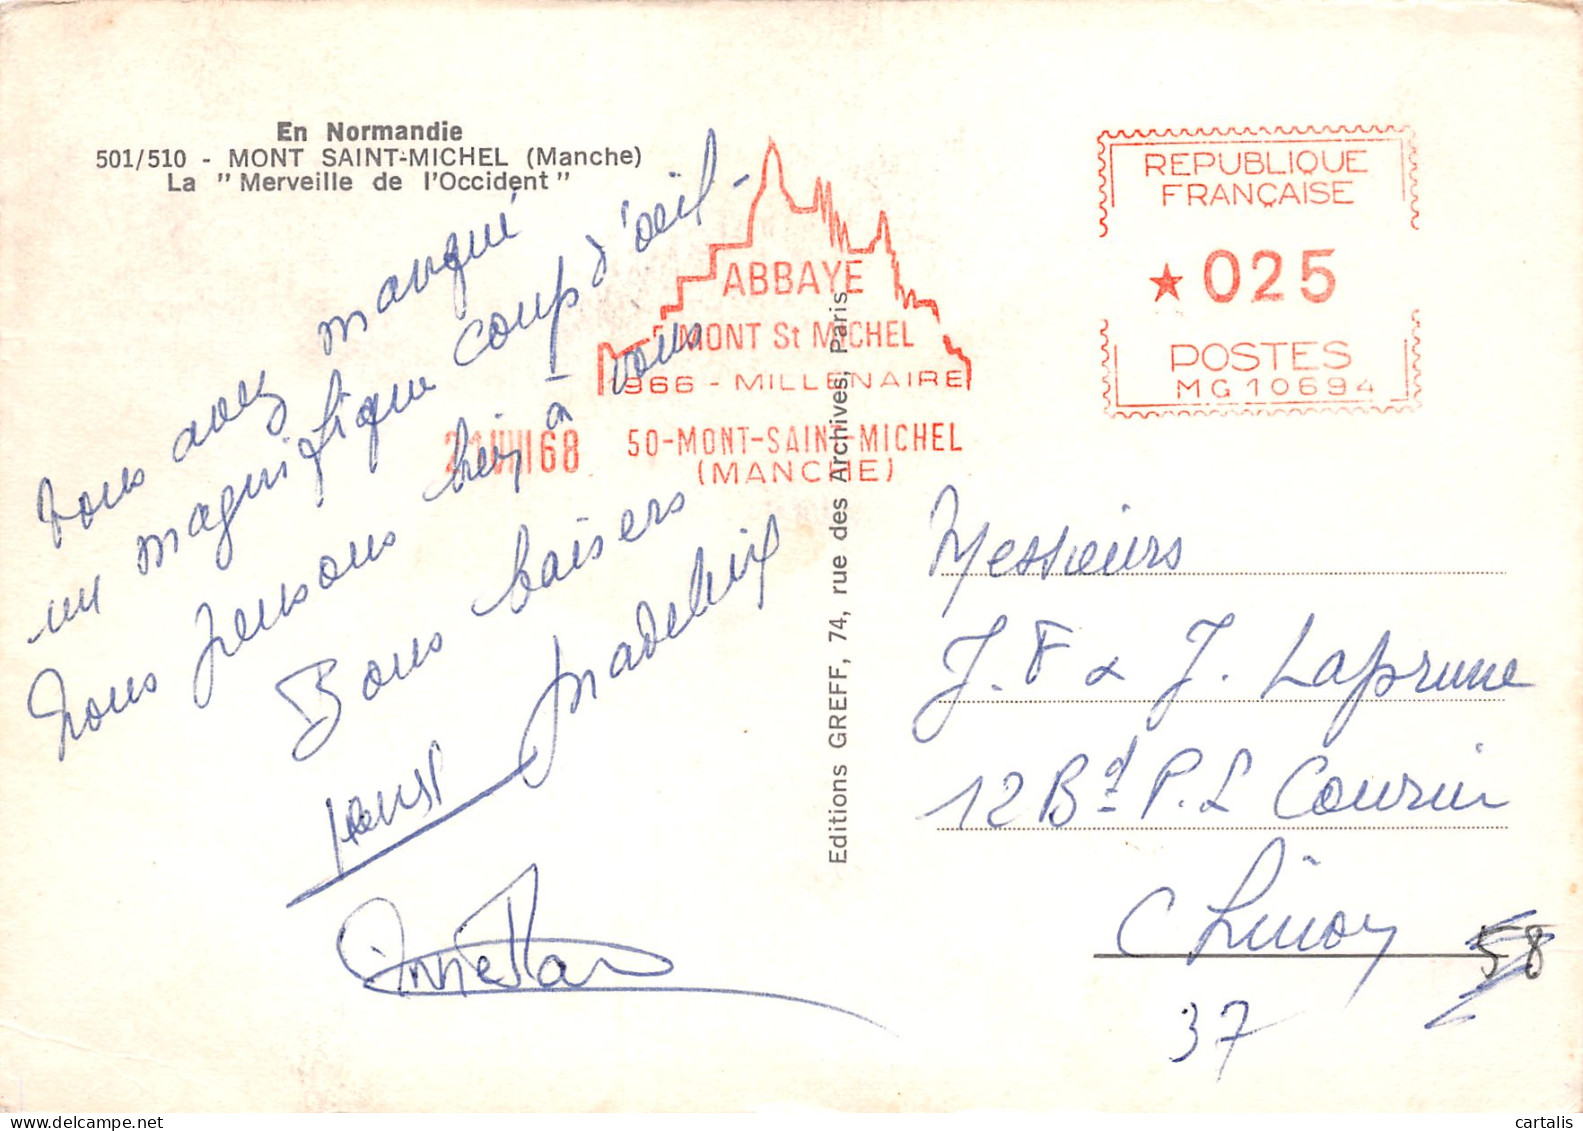 En Normandie
501/510 - MONT SAINT-MICHEL (Manche)
La " Merveille de l'Occident "
Vous avez manqué
un magnifique coup d'œil -
Nous pensons bien à vous
Bons baisers
Madeleine
ABBAYE
MONT St MICHEL
966 - MILLENAIRE
VIII 68
50-MONT-SAINT-MICHEL
(MANCHE)
REPUBLIQUE
FRANÇAISE
★ 025
POSTES
MG 10694
Editions GREFF, 74, rue des Archives, Paris
Messieurs
J. F & J. Laprune
12 Bd P. L Courier
Chinon
37
58
cartalis